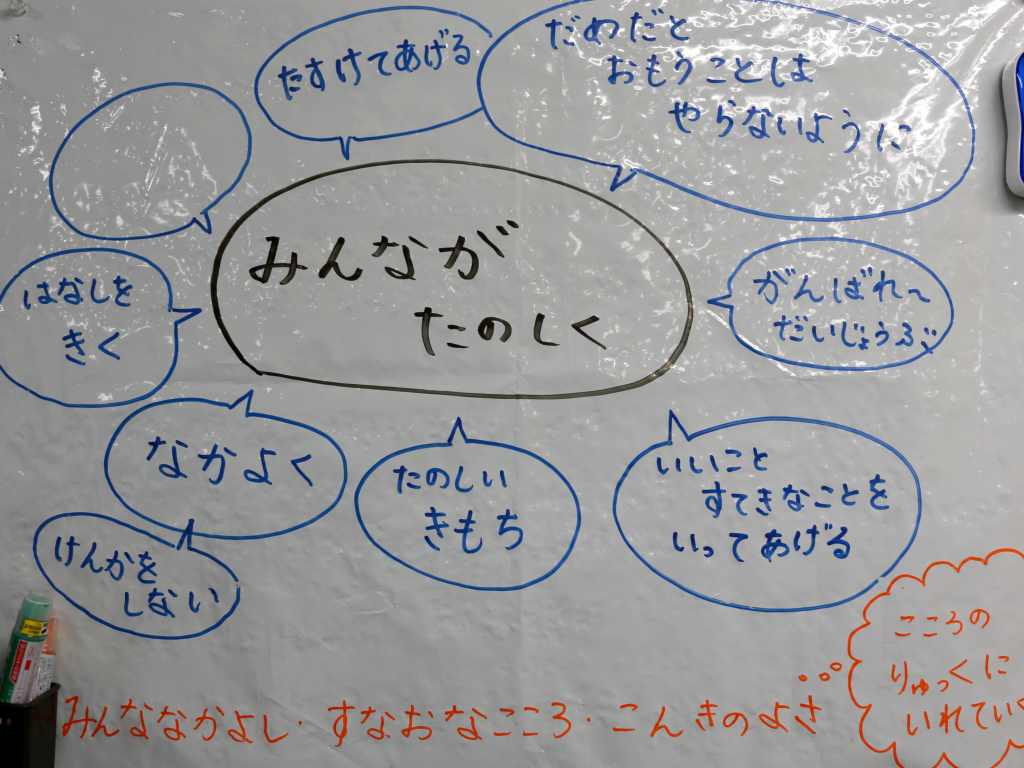 たすけてあげる
だめだと
おもうことは
やらないように
みんなが
たのしく
はなしを
きく
がんばれ~
だいじょうぶ
なかよく
たのしい
きもち
いいこと
すてきなことを
いってあげる
けんかを
しない
みんななかよし・すなおなこころ・こんきのよさ
こころの
りゅっくに
いれていく